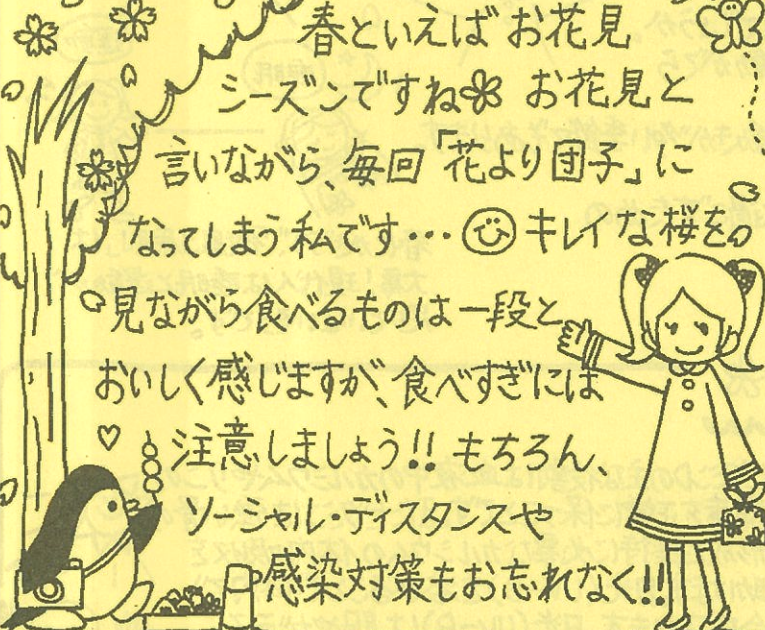 春といえば お花見
シーズンですね お花見と
言いながら、毎回「花より団子」に
なってしまう私です… キレイな桜を
見ながら食べるものは一段と
おいしく感じますが、食べすぎには
注意しましょう!! もちろん、
ソーシャル・ディスタンスや
感染対策もお忘れなく!!